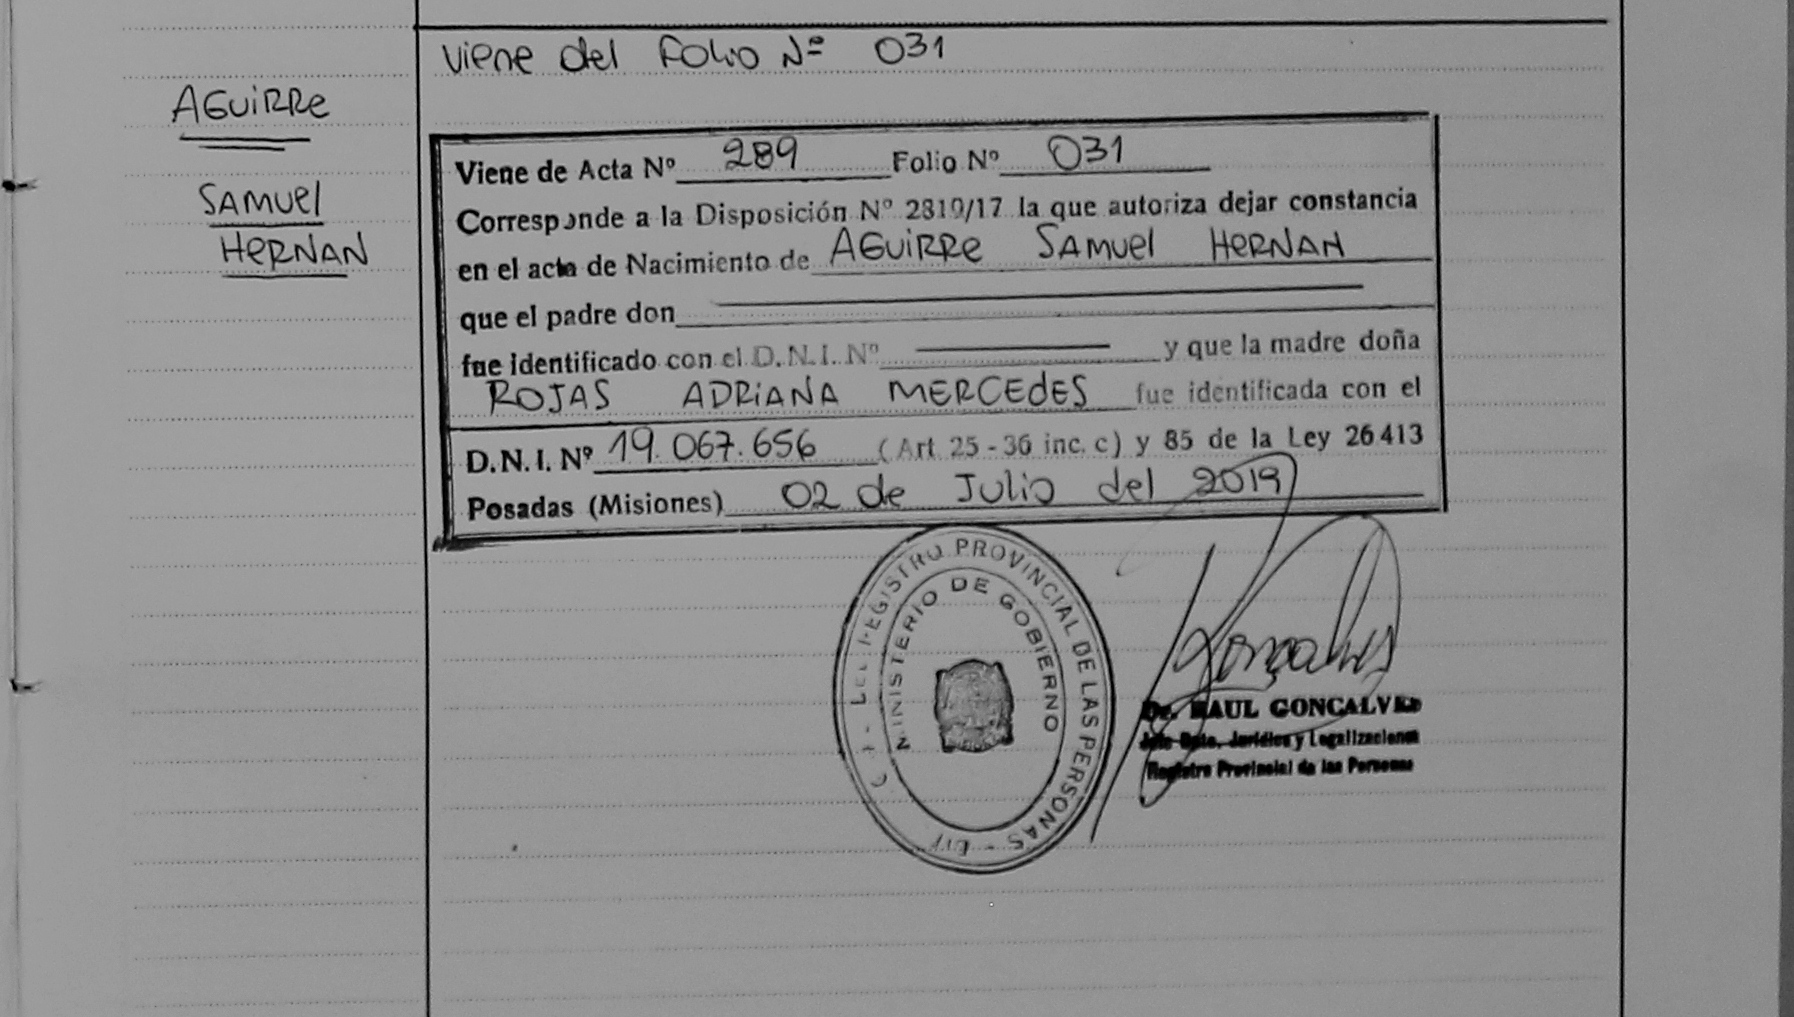 Viene del Folio Nº 031
AGUIRRE
SAMUEL
HERNAN
Viene de Acta Nº 289 Folio Nº 031
Corresponde a la Disposición Nº 2819/17 la que autoriza dejar constancia
en el acta de Nacimiento de AGUIRRE SAMUEL HERNAN
que el padre don
fue identificado con el D.N.I. Nº y que la madre doña
ROJAS ADRIANA MERCEDES fue identificada con el
D.N.I. Nº 19.067.656 (Art 25-36 inc. c) y 85 de la Ley 26413
Posadas (Misiones) 02 de Julio del 2019
REGISTRO PROVINCIAL DE LAS PERSONAS
MINISTERIO DE GOBIERNO
Goncalves
Dr. RAUL GONCALVES
Jefe Dpto. Jurídico y Legalizaciones
Registro Provincial de las Personas